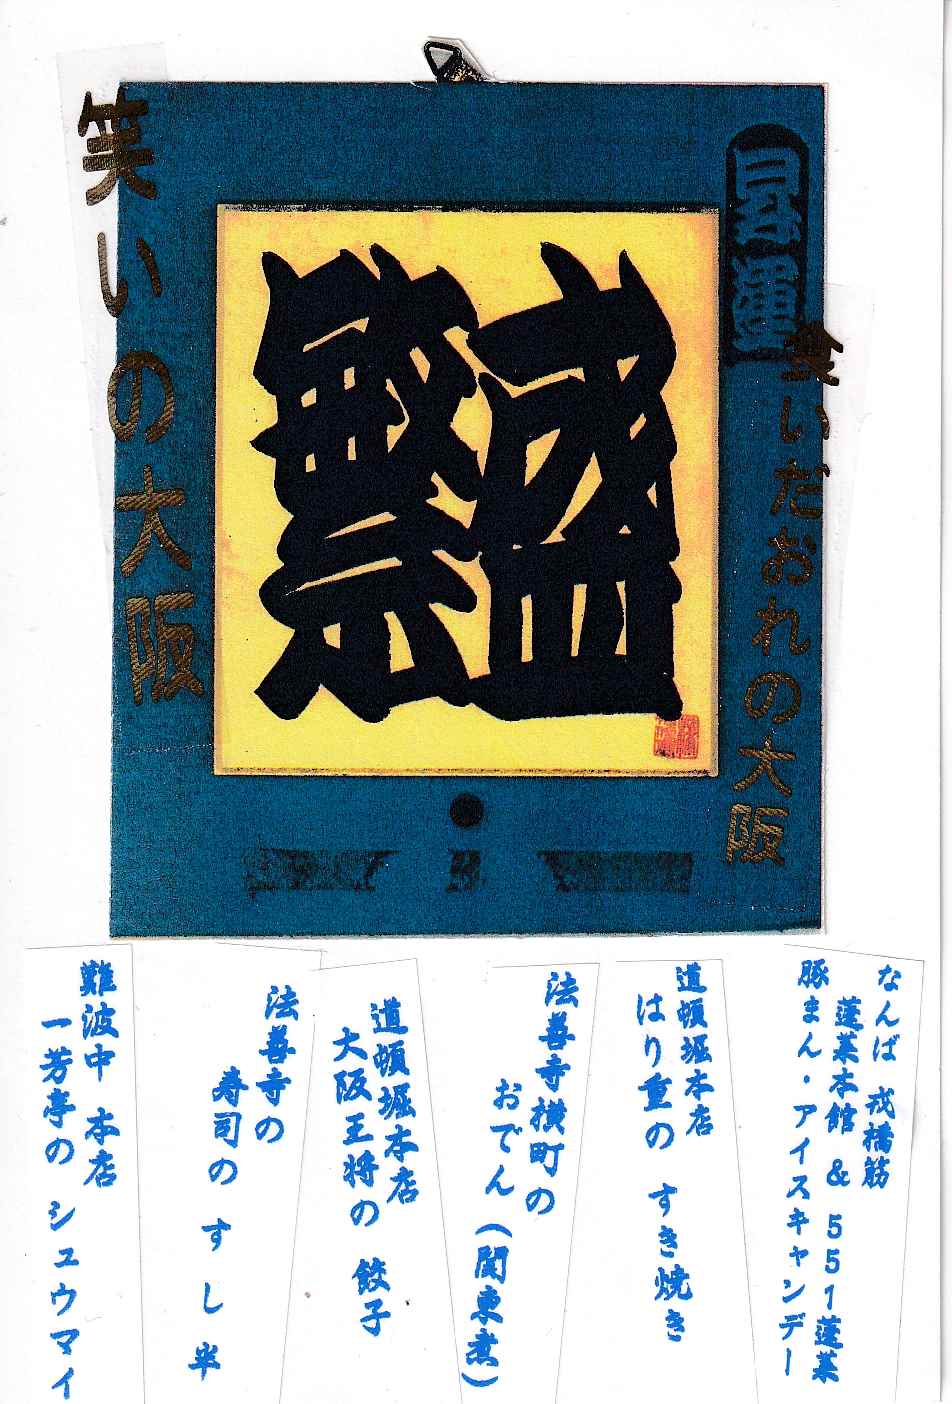 食いだおれの大阪
繁盛
笑いの大阪
なんば 戎橋筋
蓬莱本館 & 551蓬莱
豚まん・アイスキャンデー
道頓堀本店
はり重の すき焼き
法善寺横町の
おでん(関東煮)
道頓堀本店
大阪王将の 餃子
法善寺の
寿司の すし半
難波中 本店
一芳亭の シュウマイ